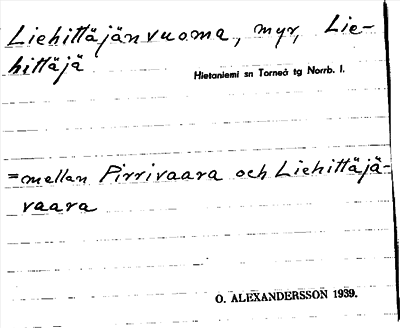 Liehittäjänvuoma, myr, Lie-
hittäjä
Hietaniemi sn Torneå tg Norrb. l.
=mellan Pirrivaara och Liehittäjä-
vaara
O. ALEXANDERSSON 1939.